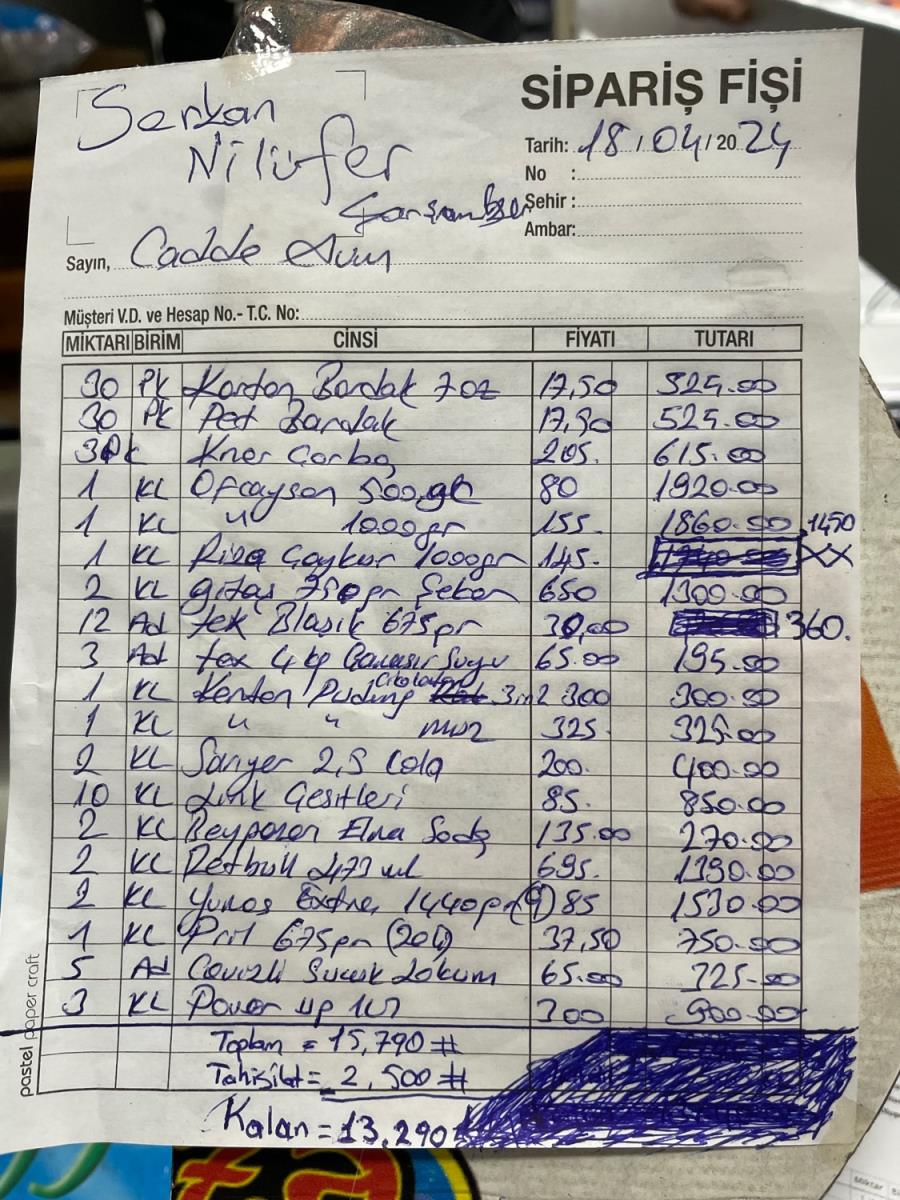 SİPARİŞ FİŞİ
Serkan
Nilüfer
Çarşamba
Tarih: 18/04/2024
No :
Şehir :
Ambar:
Sayın, Cadde Avm
Müşteri V.D. ve Hesap No.- T.C. No:
MİKTARI BİRİM CİNSİ FİYATI TUTARI
30 Pk Karton Bardak 7oz 17,50 525.00
30 Pk Pet Bardak 17,50 525.00
3 Pk Knor Çorba 205. 615.00
1 KL Ofçayson 500gr 80 1920.00
1 KL " 1000gr 155. 1860.00
1 KL Rize Çaykur 1000gr 145. 1450
2 KL 750gr Şeker 650 1300.00
12 Ad tex Bulaşık 675gr 30,00 360.
3 Ad tex 4kg Çamaşır Suyu 65.00 195.00
1 KL Kenton Puding Çikolatalı 3in2 300 300.00
1 KL " " muz 325 325.00
2 KL Sarıyer 2,5 Cola 200. 400.00
10 KL Link Çeşitleri 85. 850.00
2 KL Beypazarı Elma Soda 135.00 270.00
2 KL Retbull 473 ml 695. 1390.00
2 KL Yunos Extra 1440gr (9) 85 1530.00
1 KL Pril 675gr (20li) 37,50 750.00
5 Ad Cevizli Sucuk Lokum 65.00 325.00
3 KL Power up 1LT 300 900.00
Toplam = 15,790 #
Tahsilat = 2,500 #
Kalan = 13,290
pastel paper craft